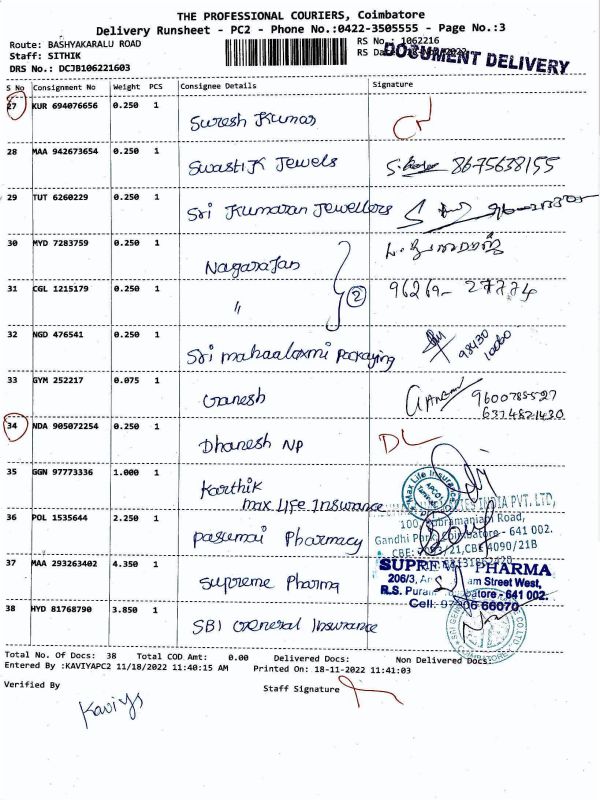 THE PROFESSIONAL COURIERS, Coimbatore
Delivery Runsheet - PC2 - Phone No.:0422-3505555 - Page No.:3
Route: BASHYAKARALU ROAD RS No.: 1062216
Staff: SITHIK RS Da
DRS No.: DCJB106221603 DOCUMENT DELIVERY
S No Consignment No Weight PCS Consignee Details Signature
27 KUR 694076656 0.250 1 Suresh Kumar
28 MAA 942673654 0.250 1 Swastik Jewels S. 8675638155
29 TUT 6260229 0.250 1 Sri Kumaran Jewellers
30 MYD 7283759 0.250 1 Nagarajan
31 CGL 1215179 0.250 1 " 2 96269- 27774
32 NGD 476541 0.250 1 Sri mahaalaxmi packaying 98430
10060
33 GYM 252217 0.075 1 Ganesh 9600785527
6374821430
34 NDA 905072254 0.250 1 Dhanesh NP DL
35 GGN 97773336 1.000 1 Karthik
max Life Insurance
Max Life Insurance
INDIA PVT. LTD,
36 POL 1535644 2.250 1 pasumai Pharmacy
Road,
Gandhi Park, Coimbatore - 641 002.
37 MAA 293263402 4.350 1 Supreme Pharma
SUPREME PHARMA
206/3, am Street West,
R.S. Puram, Coimbatore - 641 002.
Cell: 66070
38 HYD 81768790 3.850 1 SBI General Insurance
Total No. Of Docs: 38 Total COD Amt: 0.00 Delivered Docs: Non Delivered Docs:
Entered By :KAVIYAPC2 11/18/2022 11:40:15 AM Printed On: 18-11-2022 11:41:03
Verified By Staff Signature
Kaviya